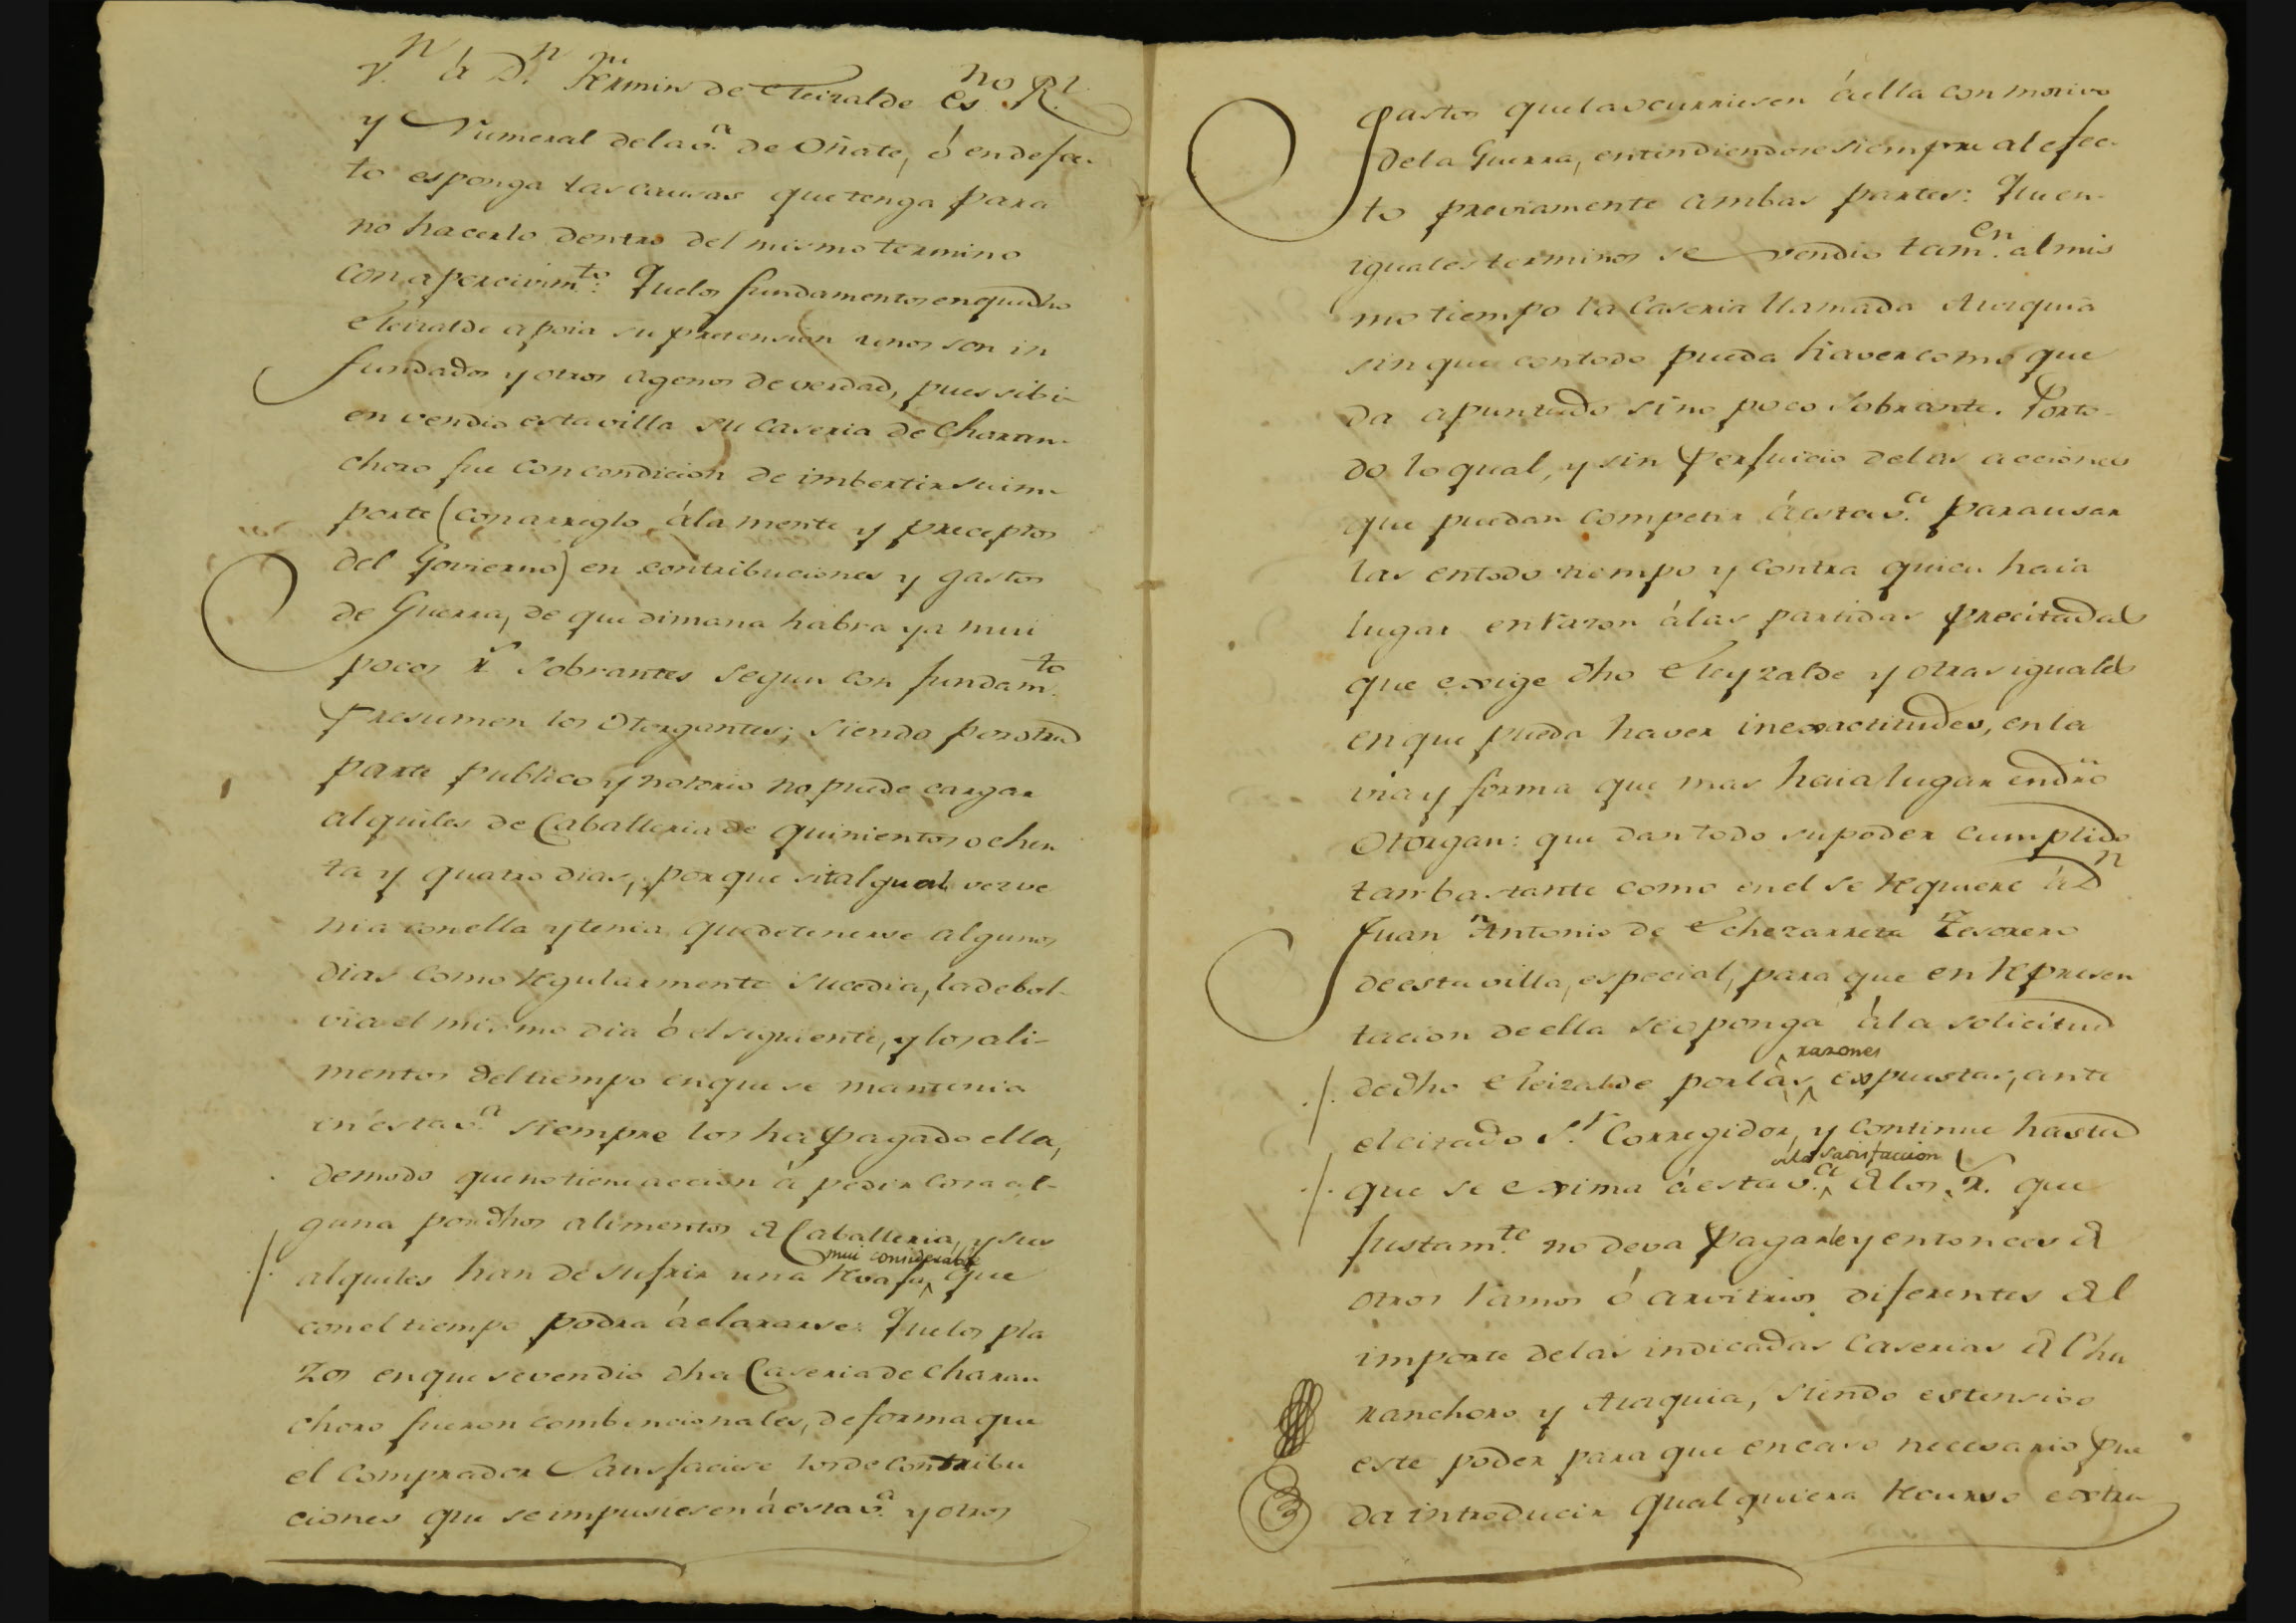 v.n á D.n Fermin de Eleizalde es.no R.l
y Numeral dela v.a de Oñate, ó endefec-
to esponga las causas que tenga para
no hacerlo dentro del mismo termino
con apercivim.to: Quelos fundamentos enque dho
Eleizalde apoia su pretension unos son in
fundados y otros agenos de verdad, pues si bi-
en vendio esta villa su Caseria de Charan-
choro fue con condicion de imbertir su im-
porte (con arreglo álamente y preceptos
del Govierno) en contribuciones y gastos
de Guerra, de que dimana habra ya mui
pocos r.s sobrantes segun con fundam.to
presumen los Otorgantes; siendo por otra
parte publico y notorio no puede cargar
alquiles de Caballeria de quinientos ochen
ta y quatro dias, porque si tal qual vez ve
nia con ella y tenia que detenerse algunos
dias como regularmente sucedia, la debol-
via el mismo dia ó el siguiente, y los ali-
mentos del tiempo enque se mantenia
en ésta v.a siempre los ha pagado ella,
demodo que no tiene accion á pedir cosa al-
guna por dhos alimentos de Caballeria, y sus
mui considerable
alquiles han de sufrir una revaja que
con el tiempo podra áclararse: Quelos pla
zos enque se vendio dha Caseria de Charan
choro fueron combencionales, de forma que
el Comprador satisfaciese los de contribu
ciones que se impusiesen á esta v.a y otros
gastos que la ocurriesen áella con motivo
dela Guerra, entendiendose siempre al efec-
to previamente ambas partes: Que en
iguales terminos se vendio tam.en al mis
mo tiempo la Caseria llamada Araquia
sin que con todo pueda haver como que
da apuntado sino poco sobrante. Porto-
do lo qual, y sin perjuicio delas acciones
que puedan competir áesta v.a para usar
las entodo tiempo y contra quien haia
lugar en razon álas partidas precitadas
que exige dho Eleyzalde y otras iguales
en que pueda haver inexactitudes, en la
via y forma que mas haia lugar en dro
Otorgan: que dan todo su poder cumplido
tan bastante como en el se requiere á D.n
Juan Antonio de Echezarreta Tesorero
de esta villa, especial, para que en represen
tacion de ella se oponga ála solicitud
razones
de dho Eleizalde por las expuestas, ante
el citado S.r Corregidor, y continue hasta
ala satisfaccion
que se exima áesta v.a de los r.s que
justam.te no deva pagarle y entonces de
otros ramos ó arvitrios diferentes del
importe delas indicadas Caserias de Cha
ranchoro y Araquia, siendo estensivo
este poder para que en caso necesario pue
da introducir qualquiera recurso extra